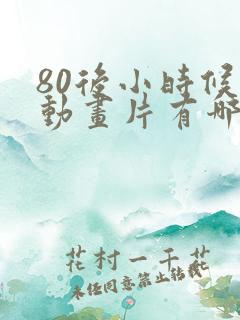 80後小時候
動畫片有哪
花村一千花
未经同意禁止转载